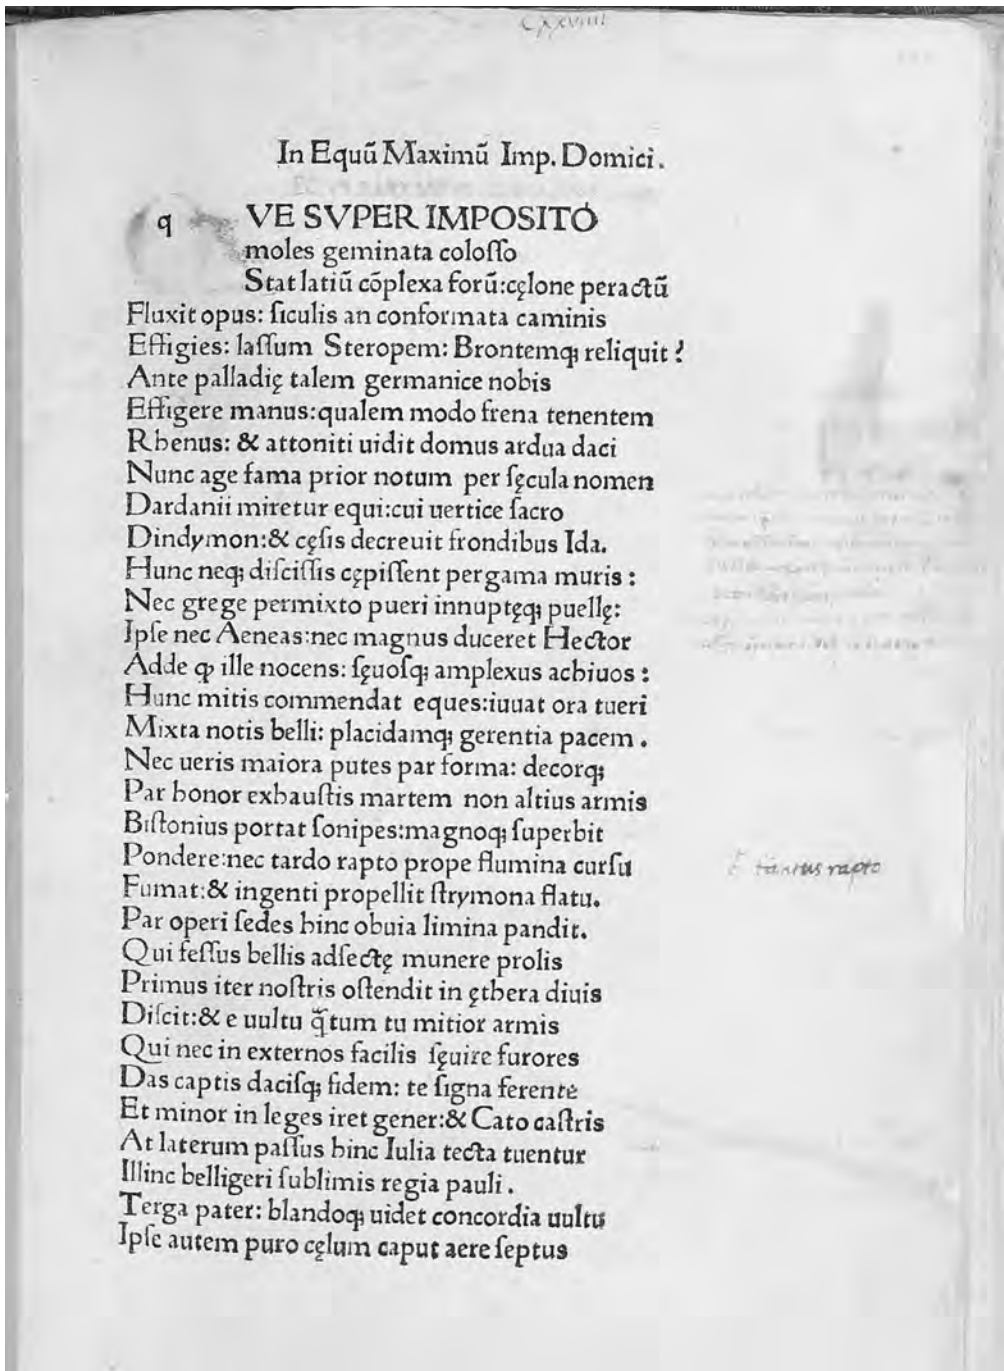 CXXVIIII
In Equũ Maximũ Imp. Domici.
q VE SVPER IMPOSITO
moles geminata coloſſo
Stat latiũ cõplexa forũ:cęlone peractũ
Fluxit opus: ſiculis an conformata caminis
Effigies: laſſum Steropem: Brontemq; reliquit?
Ante palladię talem germanice nobis
Effigere manus:qualem modo frena tenentem
Rhenus: & attoniti uidit domus ardua daci
Nunc age fama prior notum per ſęcula nomen
Dardanii miretur equi:cui uertice ſacro
Dindymon:& cęſis decreuit frondibus Ida.
Hunc neq; diſciſſis cępiſſent pergama muris:
Nec grege permixto pueri innuptęq; puellę:
Ipſe nec Aeneas:nec magnus duceret Hector
Adde ꝙ ille nocens: ſęuoſq; amplexus achiuos:
Hunc mitis commendat eques:iuuat ora tueri
Mixta notis belli: placidamq; gerentia pacem.
Nec ueris maiora putes par forma: decorq;
Par honor exhauſtis martem non altius armis
Biſtonius portat ſonipes:magnoq; ſuperbit
Pondere:nec tardo rapto prope flumina curſu
tantus rapto
Fumat:& ingenti propellit ſtrymona flatu.
Par operi ſedes hinc obuia limina pandit.
Qui feſſus bellis adſectę munere prolis
Primus iter noſtris oſtendit in ęthera diuis
Diſcit:& e uultu q̃tum tu mitior armis
Qui nec in externos facilis ſęuire furores
Das captis daciſq; fidem: te ſigna ferente
Et minor in leges iret gener:& Cato caſtris
At laterum paſſus hinc Iulia tecta tuentur
Illinc belligeri ſublimis regia pauli.
Terga pater: blandoq; uidet concordia uultu
Ipſe autem puro cęlum caput aere ſeptus